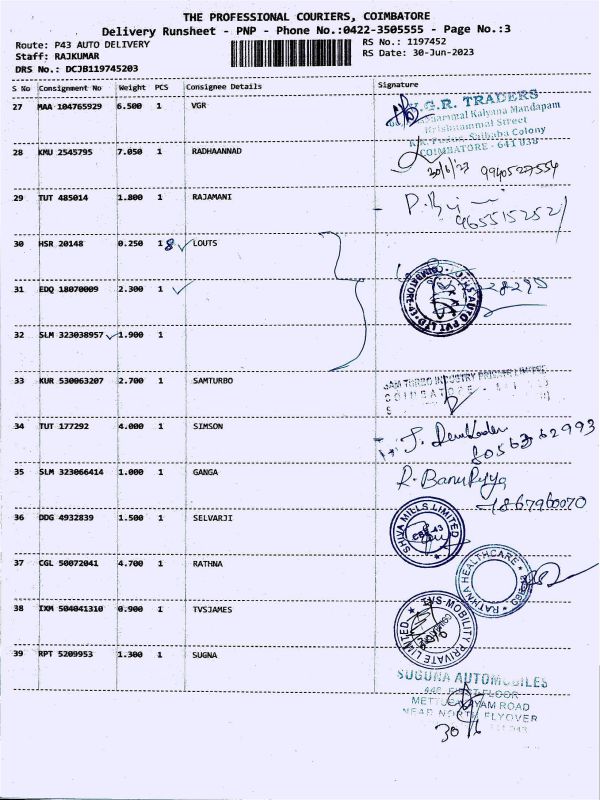 THE PROFESSIONAL COURIERS, COIMBATORE
Delivery Runsheet - PNP - Phone No.:0422-3505555 - Page No.:3
Route: P43 AUTO DELIVERY
RS No.: 1197452
Staff: RAJKUMAR
RS Date: 30-Jun-2023
DRS No.: DCJB119745203
S No Consignment No Weight PCS Consignee Details Signature
27 MAA 104765929 6.500 1 VGR
V.G.R. TRADERS
Kalyana Mandapam
Krishnammal Street
Saibaba Colony
COIMBATORE - 641 038
28 KMU 2545795 7.050 1 RADHAANNAD
30/6/23 9940527554
29 TUT 485014 1.800 1 RAJAMANI
9655152521
30 HSR 20148 0.250 1 8 LOUTS
31 EDQ 18070009 2.300 1
32 SLM 323038957 1.900 1
33 KUR 530963207 2.700 1 SAMTURBO
SAM TURBO INDUSTRY PRIVATE LIMITED
COIMBATORE
34 TUT 177292 4.000 1 SIMSON
8056362993
35 SLM 323066414 1.000 1 GANGA
R. Banu Priya
7867960070
36 DDG 4932839 1.500 1 SELVARJI
SHIVA MILLS LIMITED
CBE-43
37 CGL 50072041 4.700 1 RATHNA
RATHNA HEALTHCARE
38 IXM 504041310 0.900 1 TVSJAMES
TVS-MOBILITY PRIVATE LIMITED
39 RPT 5209953 1.300 1 SUGNA
SUGUNA AUTOMOBILES
FIRST FLOOR
METTUPALAYAM ROAD
NEAR NORTH FLYOVER
30/6